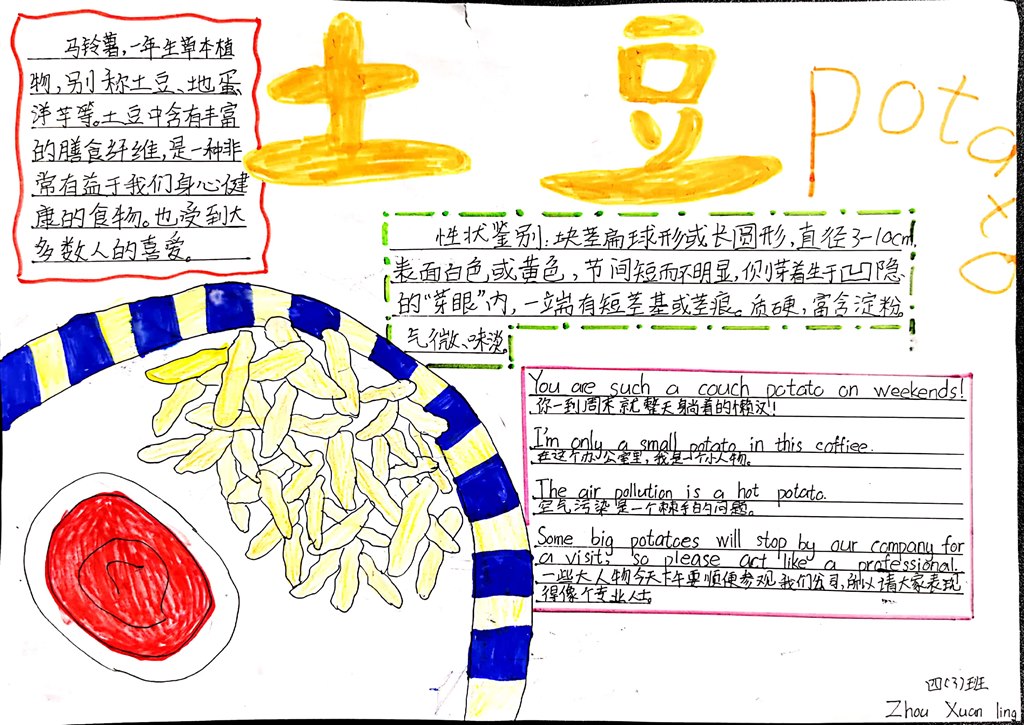 土豆 potaxo
马铃薯,一年生草本植
物,别称土豆、地蛋、
洋芋等。土豆中含有丰富
的膳食纤维,是一种非
常有益于我们身心健
康的食物。也受到大
多数人的喜爱。
性状鉴别:块茎扁球形或长圆形,直径3-10cm.
表面白色或黄色,节间短而不明显,侧芽着生于凹隐
的“芽眼”内,一端有短茎基或茎痕。质硬,富含淀粉。
气微、味淡。
You are such a couch potato on weekends!
你一到周末就整天躺着的懒汉!
I'm only a small potato in this coffiee.
在这个办公室里,我是个小人物。
The air pollution is a hot potato.
空气污染是一个棘手的问题。
Some big potatoes will stop by our company for
a visit, so please act like a professional.
一些大人物今天下午要顺便参观我们公司,所以请大家表现
得像个专业人士。
四(3)班
Zhou Xuan ling